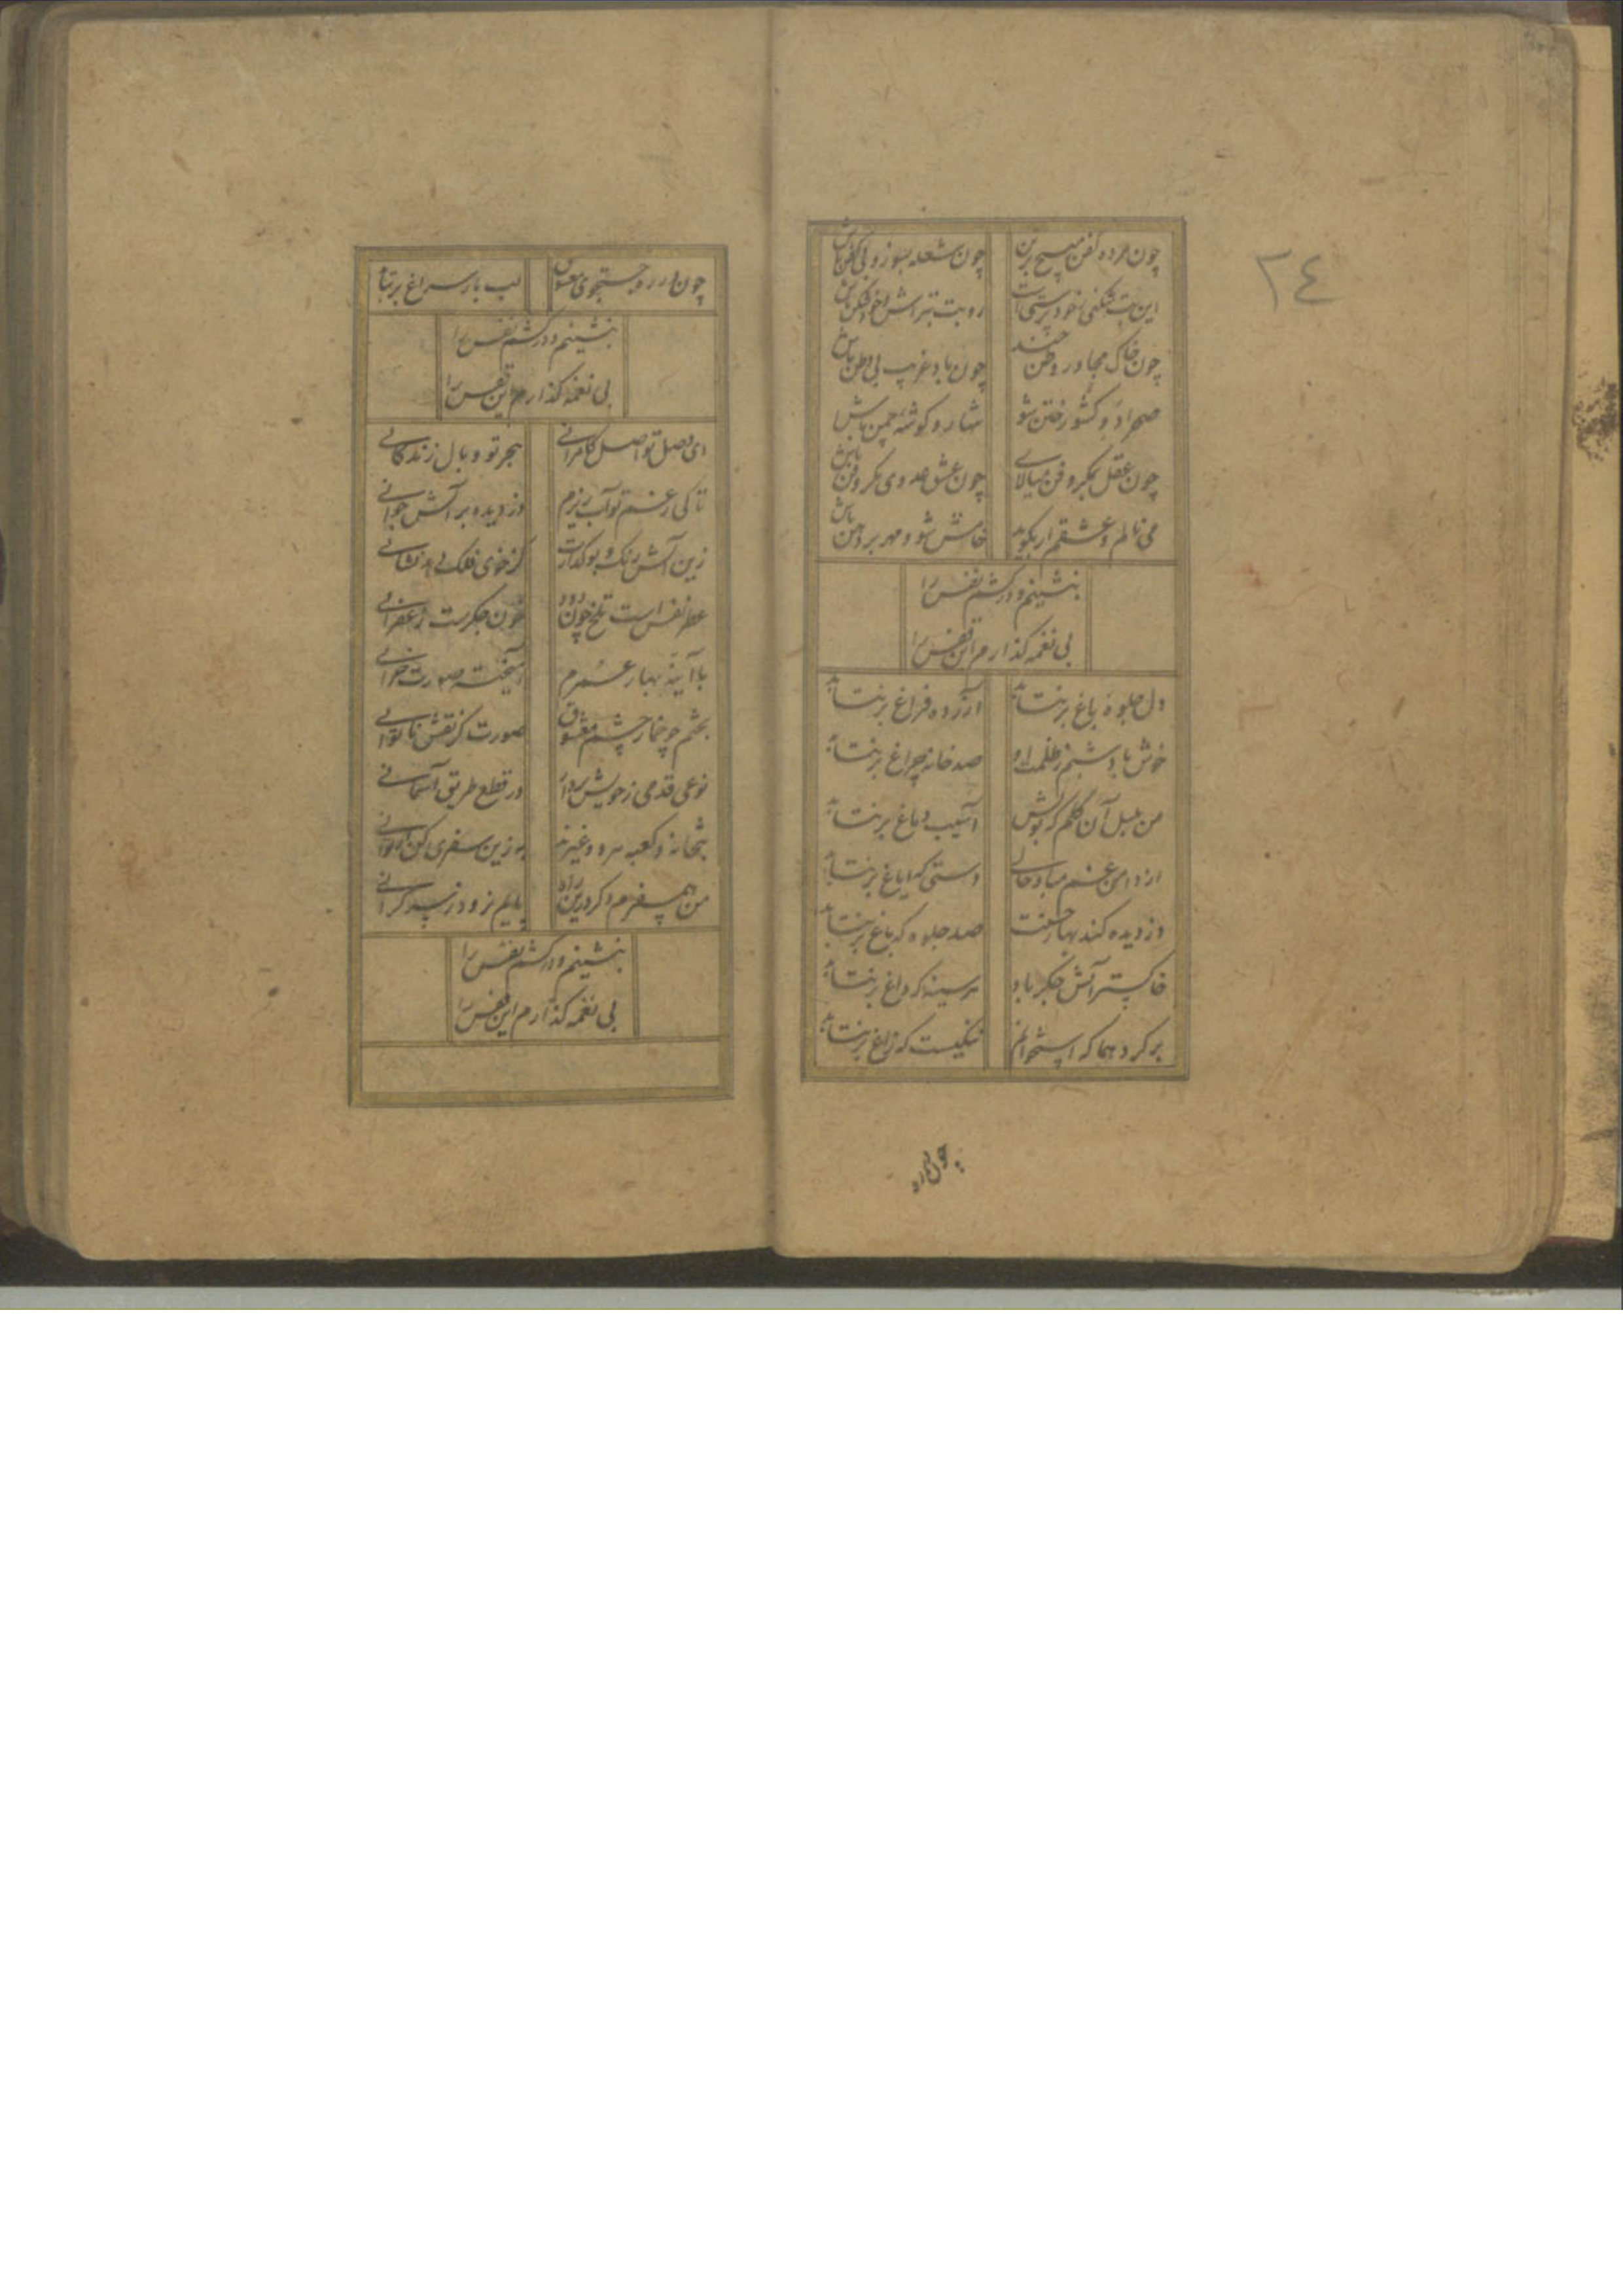 ٣٤
چون مرده کفن مپیچ بر تن چون شعله بسوز و بی کفن باش
این بت شکنی ز خود پرستی است رو بت بتراش و خود شکن باش
چون خاک مجاور وطن چند چون باد غریب بی وطن باش
صحرا و کشور ختن شو تنها رو گوشه چمن باش
چون عقل بمکر و فن میالای چون عشق عدوی مکر و فن باش
می نالم و عشقم ار بگوید خامش شو و مهر بر دهن باش
بنشینم و در کشم نفس را
بی نغمه گذارم این قفس را
دل جلوه باغ برنتابد آزرده فراغ برنتابد
خوش باد شبم ز ظلمت او صد خانه چراغ برنتابد
من بلبل آن گلم که بویش آسیب دماغ برنتابد
از دامن غم مباد خالی دستی که ایاغ برنتابد
دزدیده کند بهار حسنت صد جلوه که باغ برنتابد
خاکستر آتش جگر باد هر سینه که داغ برنتابد
برگرد هما که استخوانم سنگیست که زاغ برنتابد
چون در ره
چون در ره جستجوی معشوق لب بار سراغ برنتابد
بنشینم و در کشم نفس را
بی نغمه گذارم این قفس را
ای وصل تو اصل کامرانی هجر تو وبال زندگانی
تا کی ز غم تو آب ریزم دزدیده بر آتش جوانی
زین آتش رنگ و بو گدازت کز خوی فلک دهد نشانی
عطر نفس است تلخ چون دود خون جگرست زعفرانی
با آینه بهار عمرم آمیخته صورت خزانی
بختم چو خمار چشم معشوق صورتگر نقش ناتوانی
نوعی قدمی ز خویش بردار در قطع طریق آسمانی
بتخانه و کعبه هر دو غیرند به زین سفری کن ار توانی
من همسفرم و گر درین راه پایم نرود ز بس گرانی
بنشینم و در کشم نفس را
بی نغمه گذارم این قفس را